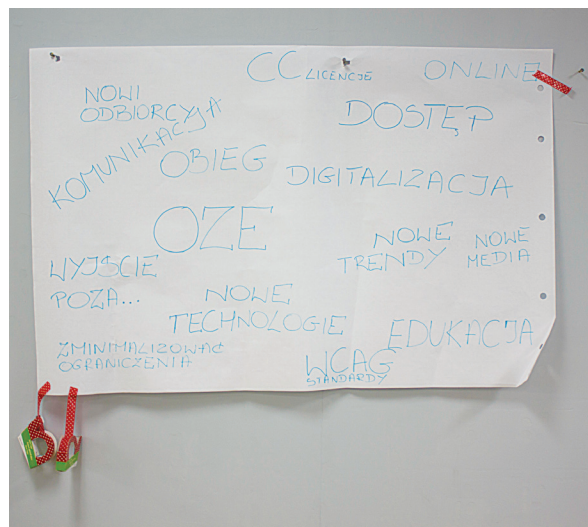 CC LICENCJE
ONLINE
NOWI
ODBIORCYJA
KOMUNIKACJA
DOSTĘP
OBIEG
DIGITALIZACJA
OZE
NOWE
TRENDY
NOWE
MEDIA
WYJŚCIE
POZA...
NOWE
TECHNOLOGIE
EDUKACJA
ZMINIMALIZOWAĆ
OGRANICZENIA
WCAG
STANDARDY